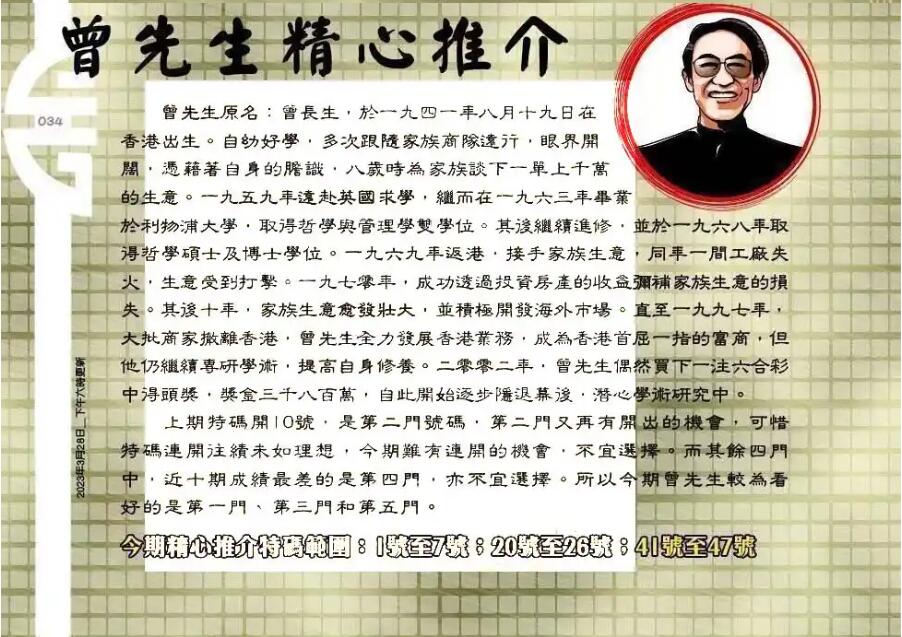 曾先生精心推介
034
曾先生原名：曾長生，於一九四一年八月十九日在
香港出生。自幼好學，多次跟隨家族商隊遠行，眼界開
闊，憑藉著自身的膽識，八歲時為家族談下一單上千萬
的生意。一九五九年遠赴英國求學，繼而在一九六三年畢業
於利物浦大學，取得哲學與管理學雙學位。其後繼續進修，並於一九六八年取
得哲學碩士及博士學位。一九六九年返港，接手家族生意，同年一間工廠失
火，生意受到打擊。一九七零年，成功透過投資房產的收益彌補家族生意的損
失。其後十年，家族生意愈發壯大，並積極開發海外市場。直至一九九七年，
大批商家撤離香港，曾先生全力發展香港業務，成為香港首屈一指的富商，但
他仍繼續專研學術，提高自身修養。二零零二年，曾先生偶然買下一注六合彩
中得頭獎，獎金三千八百萬，自此開始逐步隱退幕後，潛心學術研究中。
上期特碼開10號，是第二門號碼，第二門又再有開出的機會，可惜
特碼連開往績未如理想，今期雖有連開的機會，不宜選擇。而其餘四門
中，近十期成績最差的是第四門，亦不宜選擇。所以今期曾先生較為看
好的是第一門、第三門和第五門。
今期精心推介特碼範圍：1號至7號；20號至26號；41號至47號
2023年3月28日__下午六時更新